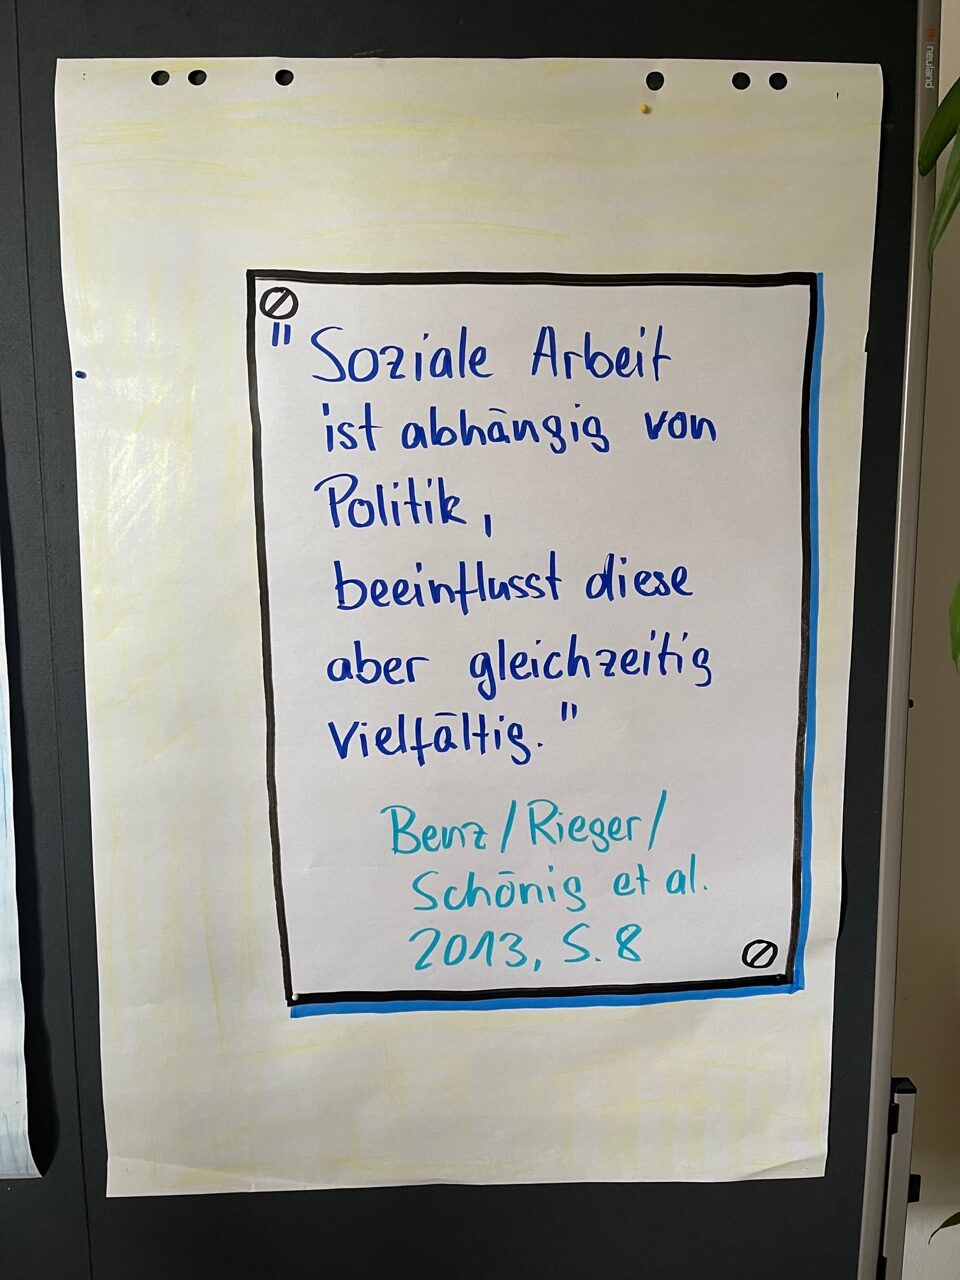 neuland
"Soziale Arbeit
ist abhängig von
Politik,
beeinflusst diese
aber gleichzeitig
vielfältig."
Benz/Rieger/
Schönig et al.
2013, S. 8